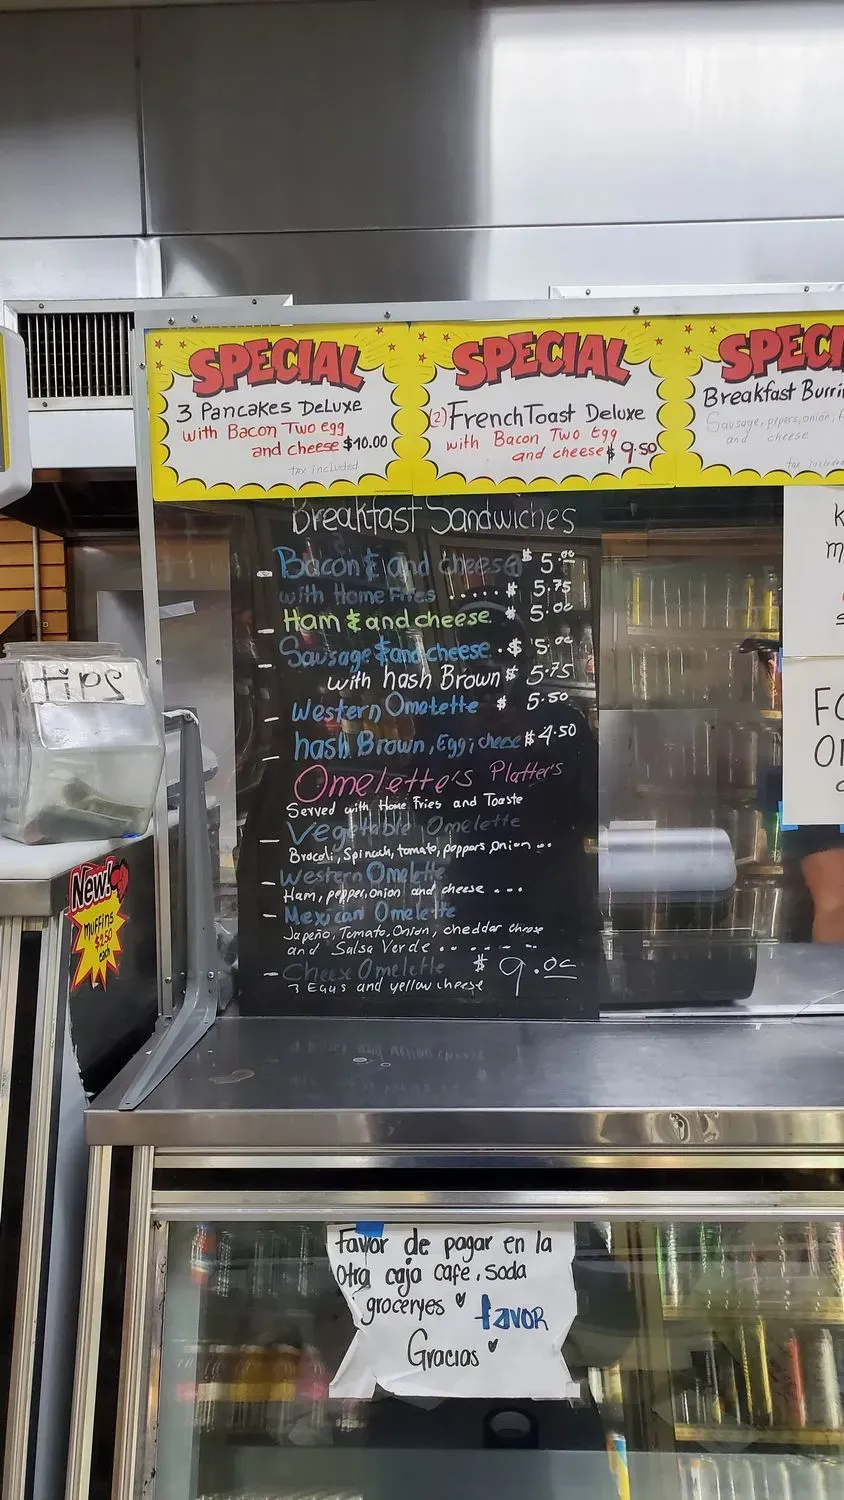 SPECIAL
3 Pancakes DeLuxe
with Bacon Two Egg
and cheese $10.00
tax included
SPECIAL
(2) French Toast Deluxe
with Bacon Two Egg
and cheese $ 9.50
Breakfast
Sausage, pepers, onion,
and cheese
tax
Breakfast Sandwiches
- Bacon & and cheese $ 5.00
with Home Fries ..... $ 5.75
- Ham & and cheese $ 5.00
- Sausage & and cheese . $ 5.00
with hash Brown $ 5.75
- Western Omelette $ 5.50
- hash Brown, Egg i cheese $4.50
Omelette's Platter's
Served with Home Fries and Toaste
- Vegetable Omelette
Brocoli, Spinach, tomato, peppars, onion ...
- Western Omelette
Ham, pepper, onion and cheese ...
- Mexican Omelette
Japeño, Tomato, Onion, cheddar cheese
and Salsa Verde
- Cheese Omelette $ 9.00
3 Eggs and yellow cheese
TIPS
New!
muffins
$2.50
each
Favor de pagar en la
Otra caja cafe, soda
groceryes ♥ favor
Gracias ♥